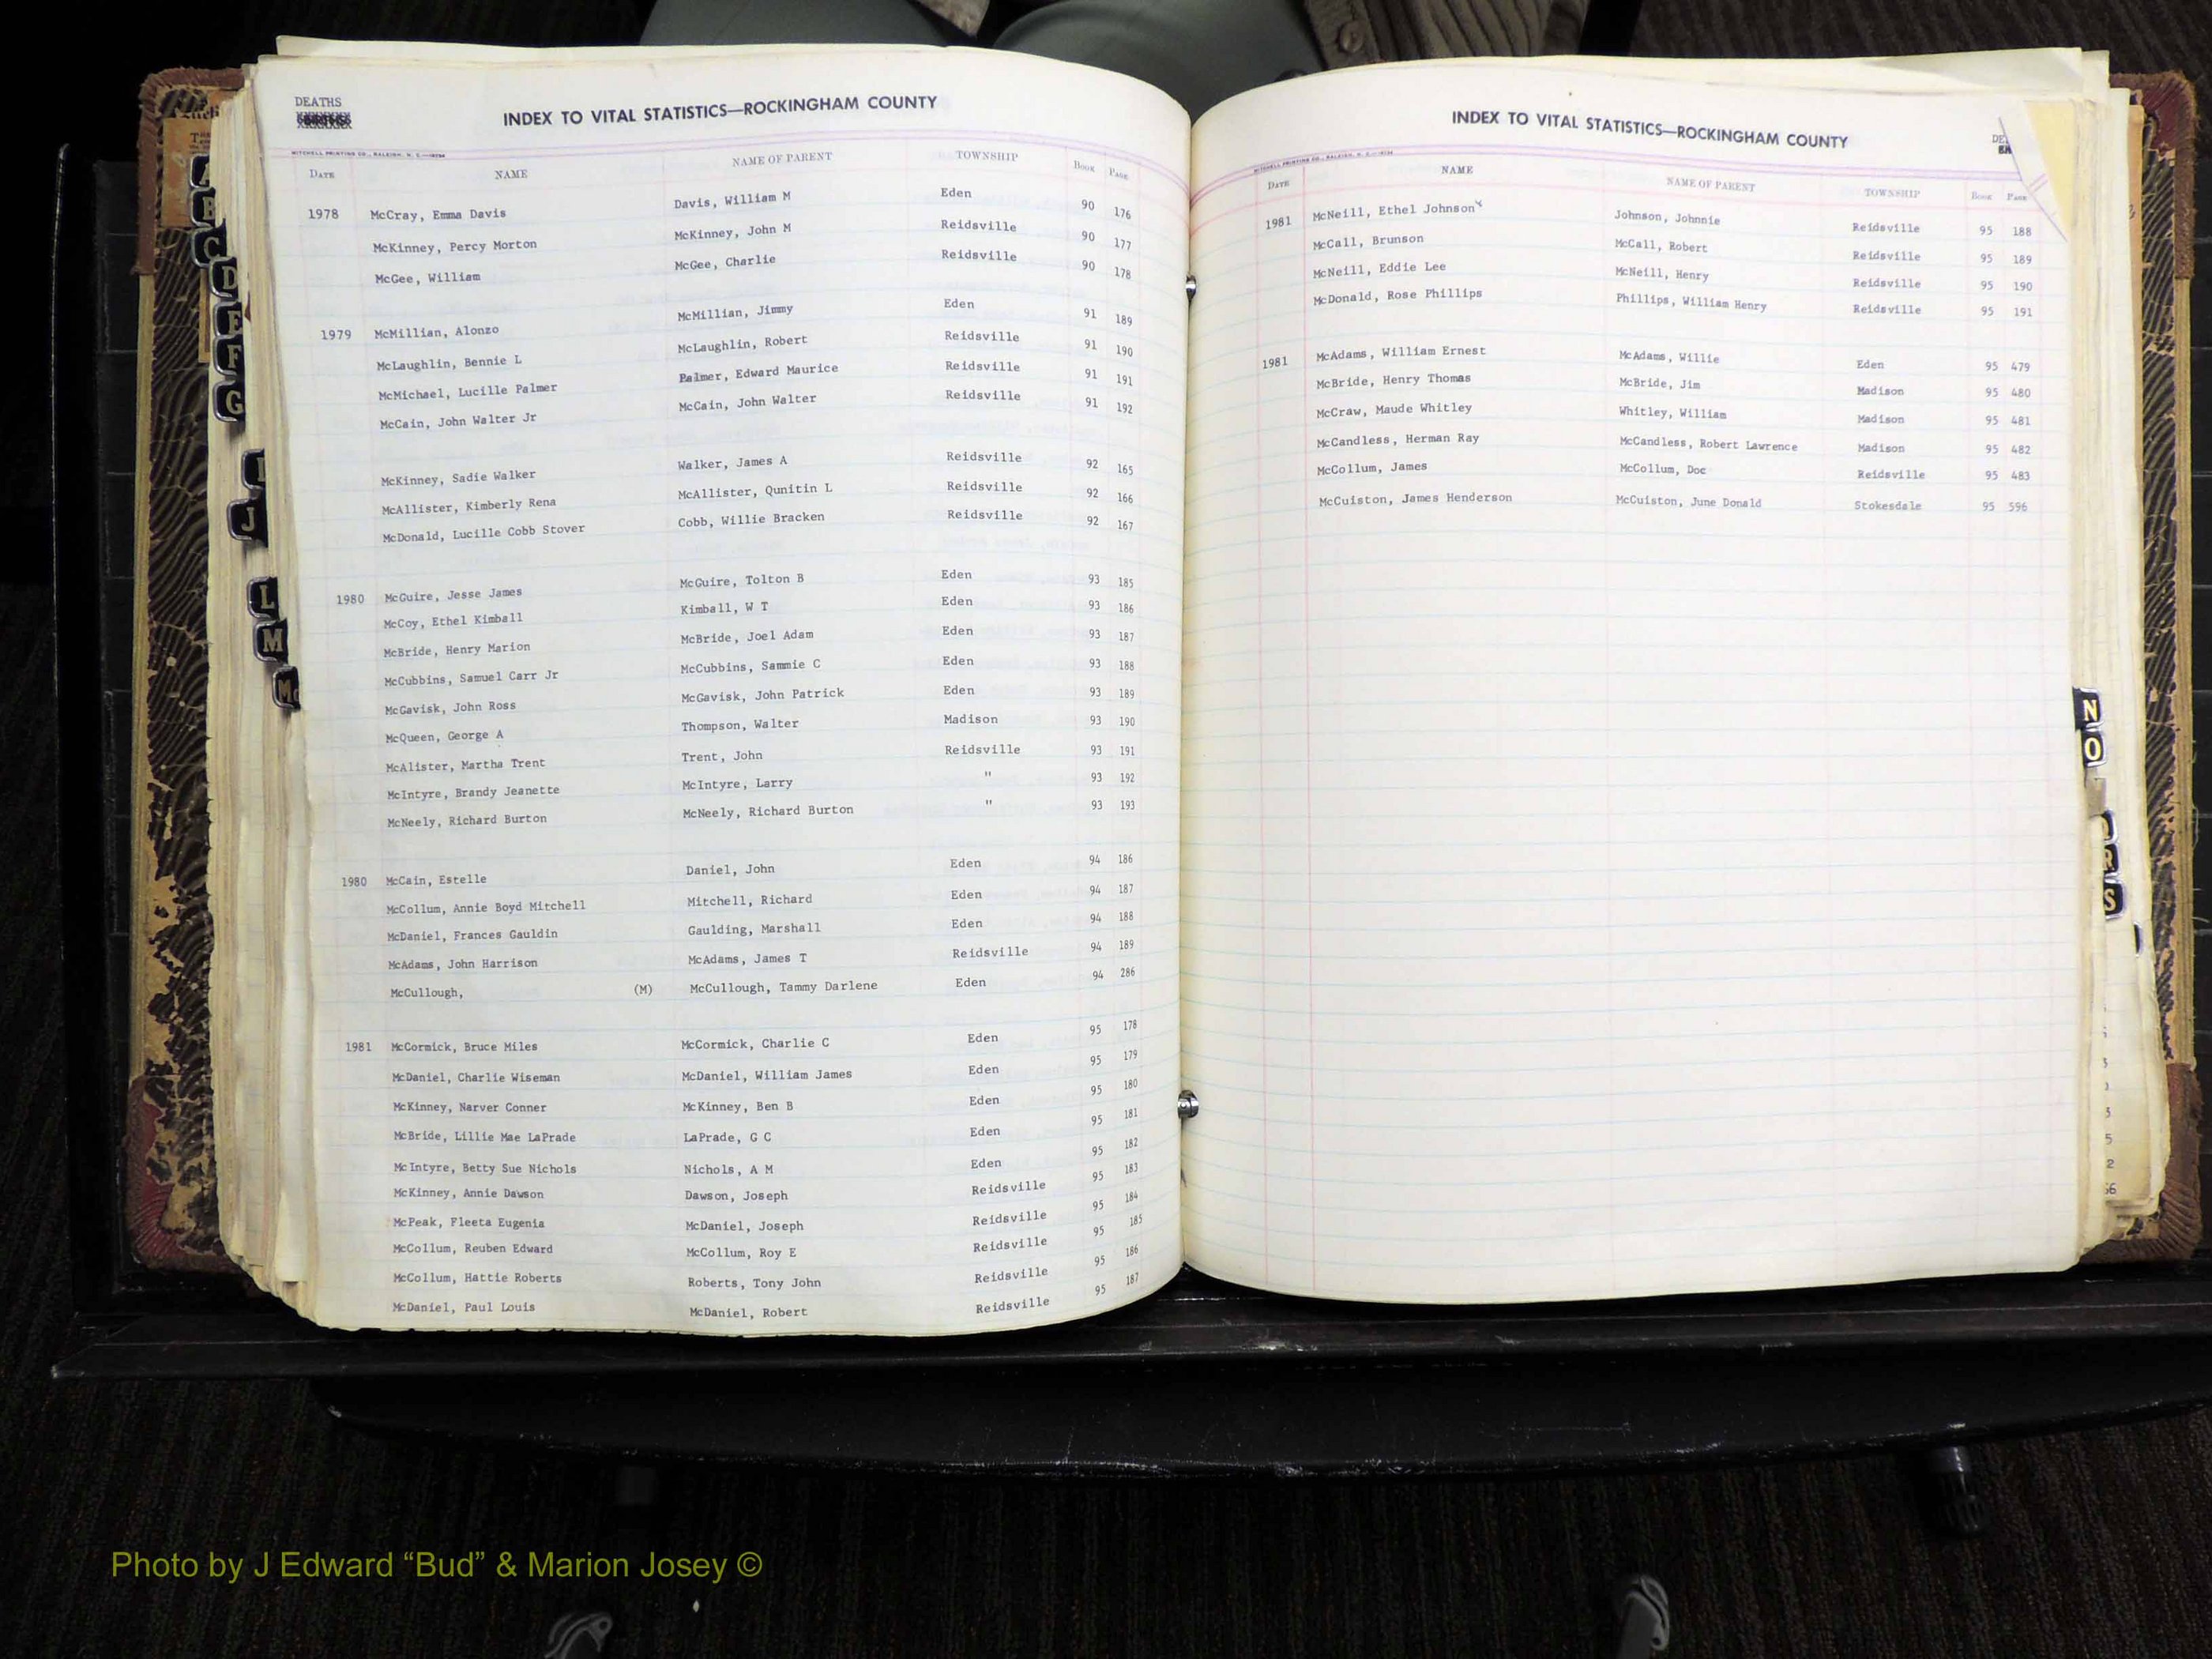 DEATHS
INDEX TO VITAL STATISTICS—ROCKINGHAM COUNTY
MITCHELL PRINTING CO., RALEIGH, N. C.
DATE NAME NAME OF PARENT TOWNSHIP BOOK PAGE
1978 McCray, Emma Davis Davis, William M Eden 90 176
McKinney, Percy Morton McKinney, John M Reidsville 90 177
McGee, William McGee, Charlie Reidsville 90 178
1979 McMillian, Alonzo McMillian, Jimmy Eden 91 189
McLaughlin, Bennie L McLaughlin, Robert Reidsville 91 190
McMichael, Lucille Palmer Palmer, Edward Maurice Reidsville 91 191
McCain, John Walter Jr McCain, John Walter Reidsville 91 192
McKinney, Sadie Walker Walker, James A Reidsville 92 165
McAllister, Kimberly Rena McAllister, Qunitin L Reidsville 92 166
McDonald, Lucille Cobb Stover Cobb, Willie Bracken Reidsville 92 167
1980 McGuire, Jesse James McGuire, Tolton B Eden 93 185
McCoy, Ethel Kimball Kimball, W T Eden 93 186
McBride, Henry Marion McBride, Joel Adam Eden 93 187
McCubbins, Samuel Carr Jr McCubbins, Sammie C Eden 93 188
McGavisk, John Ross McGavisk, John Patrick Eden 93 189
McQueen, George A Thompson, Walter Madison 93 190
McAlister, Martha Trent Trent, John Reidsville 93 191
McIntyre, Brandy Jeanette McIntyre, Larry " 93 192
McNeely, Richard Burton McNeely, Richard Burton " 93 193
1980 McCain, Estelle Daniel, John Eden 94 186
McCollum, Annie Boyd Mitchell Mitchell, Richard Eden 94 187
McDaniel, Frances Gauldin Gaulding, Marshall Eden 94 188
McAdams, John Harrison McAdams, James T Reidsville 94 189
McCullough, (M) McCullough, Tammy Darlene Eden 94 286
1981 McCormick, Bruce Miles McCormick, Charlie C Eden 95 178
McDaniel, Charlie Wiseman McDaniel, William James Eden 95 179
McKinney, Narver Conner McKinney, Ben B Eden 95 180
McBride, Lillie Mae LaPrade LaPrade, G C Eden 95 181
McIntyre, Betty Sue Nichols Nichols, A M Eden 95 182
McKinney, Annie Dawson Dawson, Joseph Reidsville 95 183
McPeak, Fleeta Eugenia McDaniel, Joseph Reidsville 95 184
McCollum, Reuben Edward McCollum, Roy E Reidsville 95 185
McCollum, Hattie Roberts Roberts, Tony John Reidsville 95 186
McDaniel, Paul Louis McDaniel, Robert Reidsville 95 187
INDEX TO VITAL STATISTICS—ROCKINGHAM COUNTY
MITCHELL PRINTING CO., RALEIGH, N. C.
DATE NAME NAME OF PARENT TOWNSHIP BOOK PAGE
1981 McNeill, Ethel Johnson Johnson, Johnnie Reidsville 95 188
McCall, Brunson McCall, Robert Reidsville 95 189
McNeill, Eddie Lee McNeill, Henry Reidsville 95 190
McDonald, Rose Phillips Phillips, William Henry Reidsville 95 191
1981 McAdams, William Ernest McAdams, Willie Eden 95 479
McBride, Henry Thomas McBride, Jim Madison 95 480
McCraw, Maude Whitley Whitley, William Madison 95 481
McCandless, Herman Ray McCandless, Robert Lawrence Madison 95 482
McCollum, James McCollum, Doc Reidsville 95 483
McCuiston, James Henderson McCuiston, June Donald Stokesdale 95 596
C
D
E
F
G
J
L
M
Mc
N
O
R
S
Photo by J Edward “Bud” & Marion Josey ©